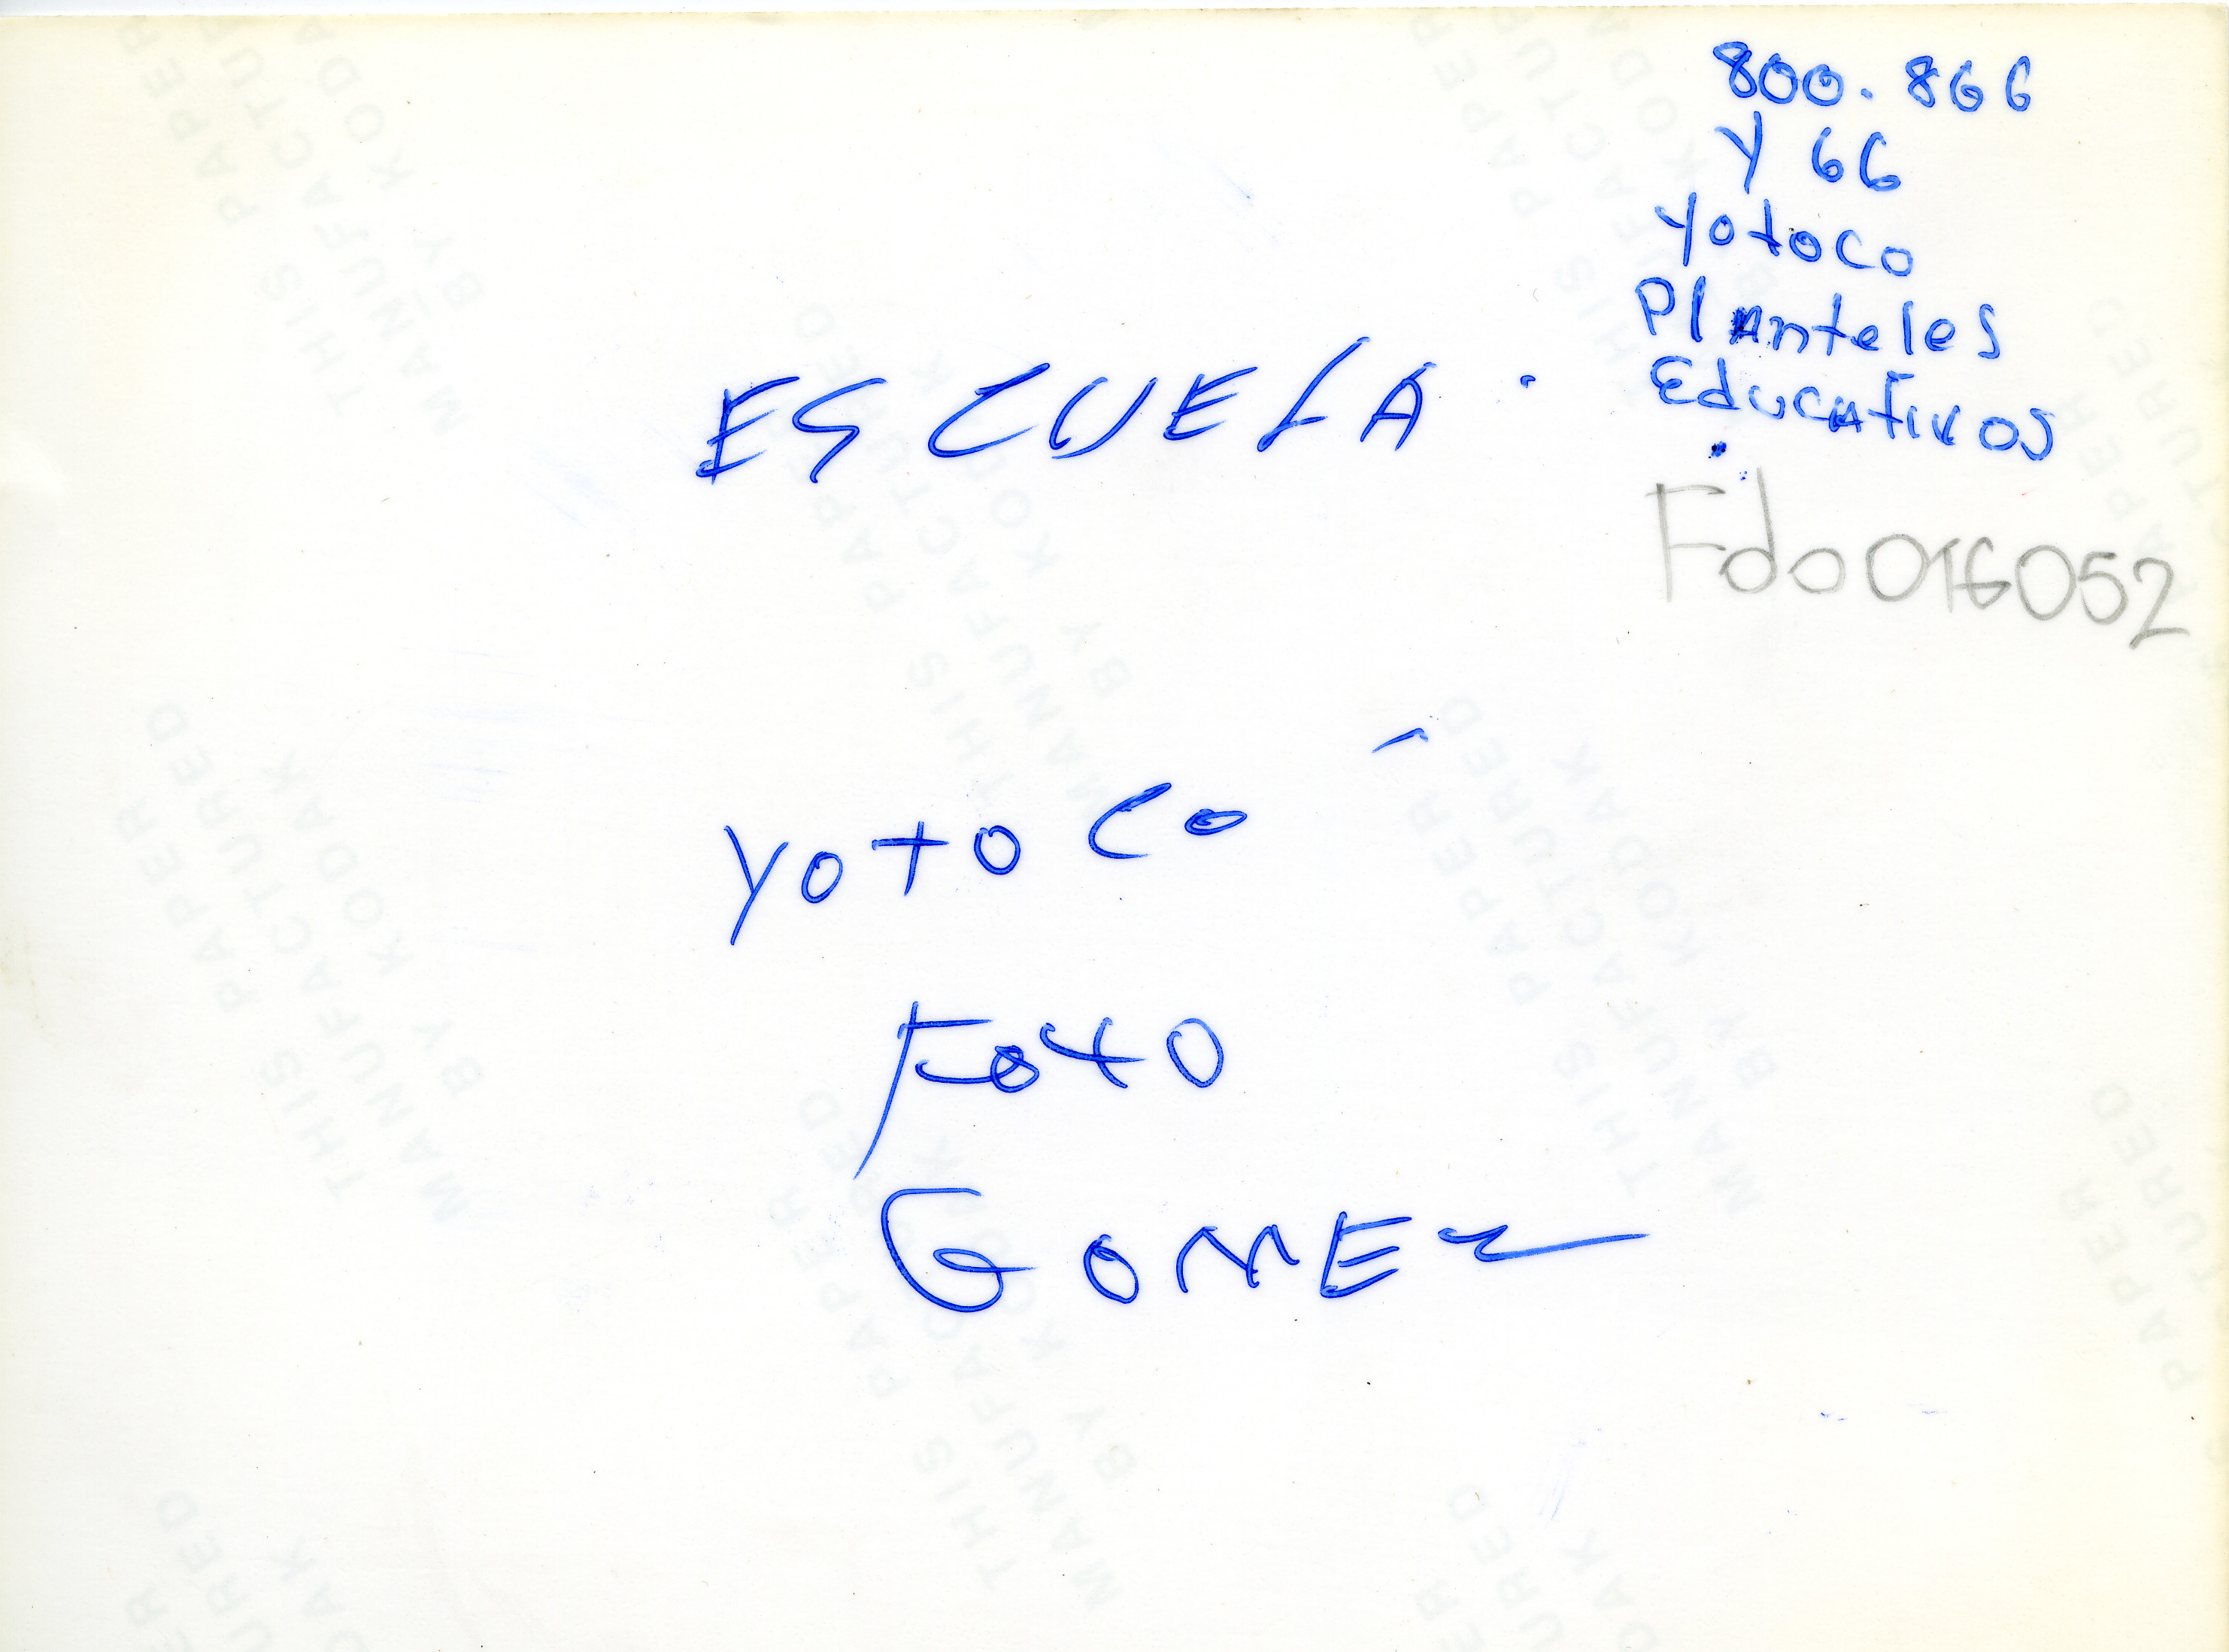 800.866
Y 66
Yotoco
Planteles
Educativos
Fdo016052
ESCUELA.
Yotoco
Foto
GOMEZ
THIS PAPER
MANUFACTURED
BY KODAK